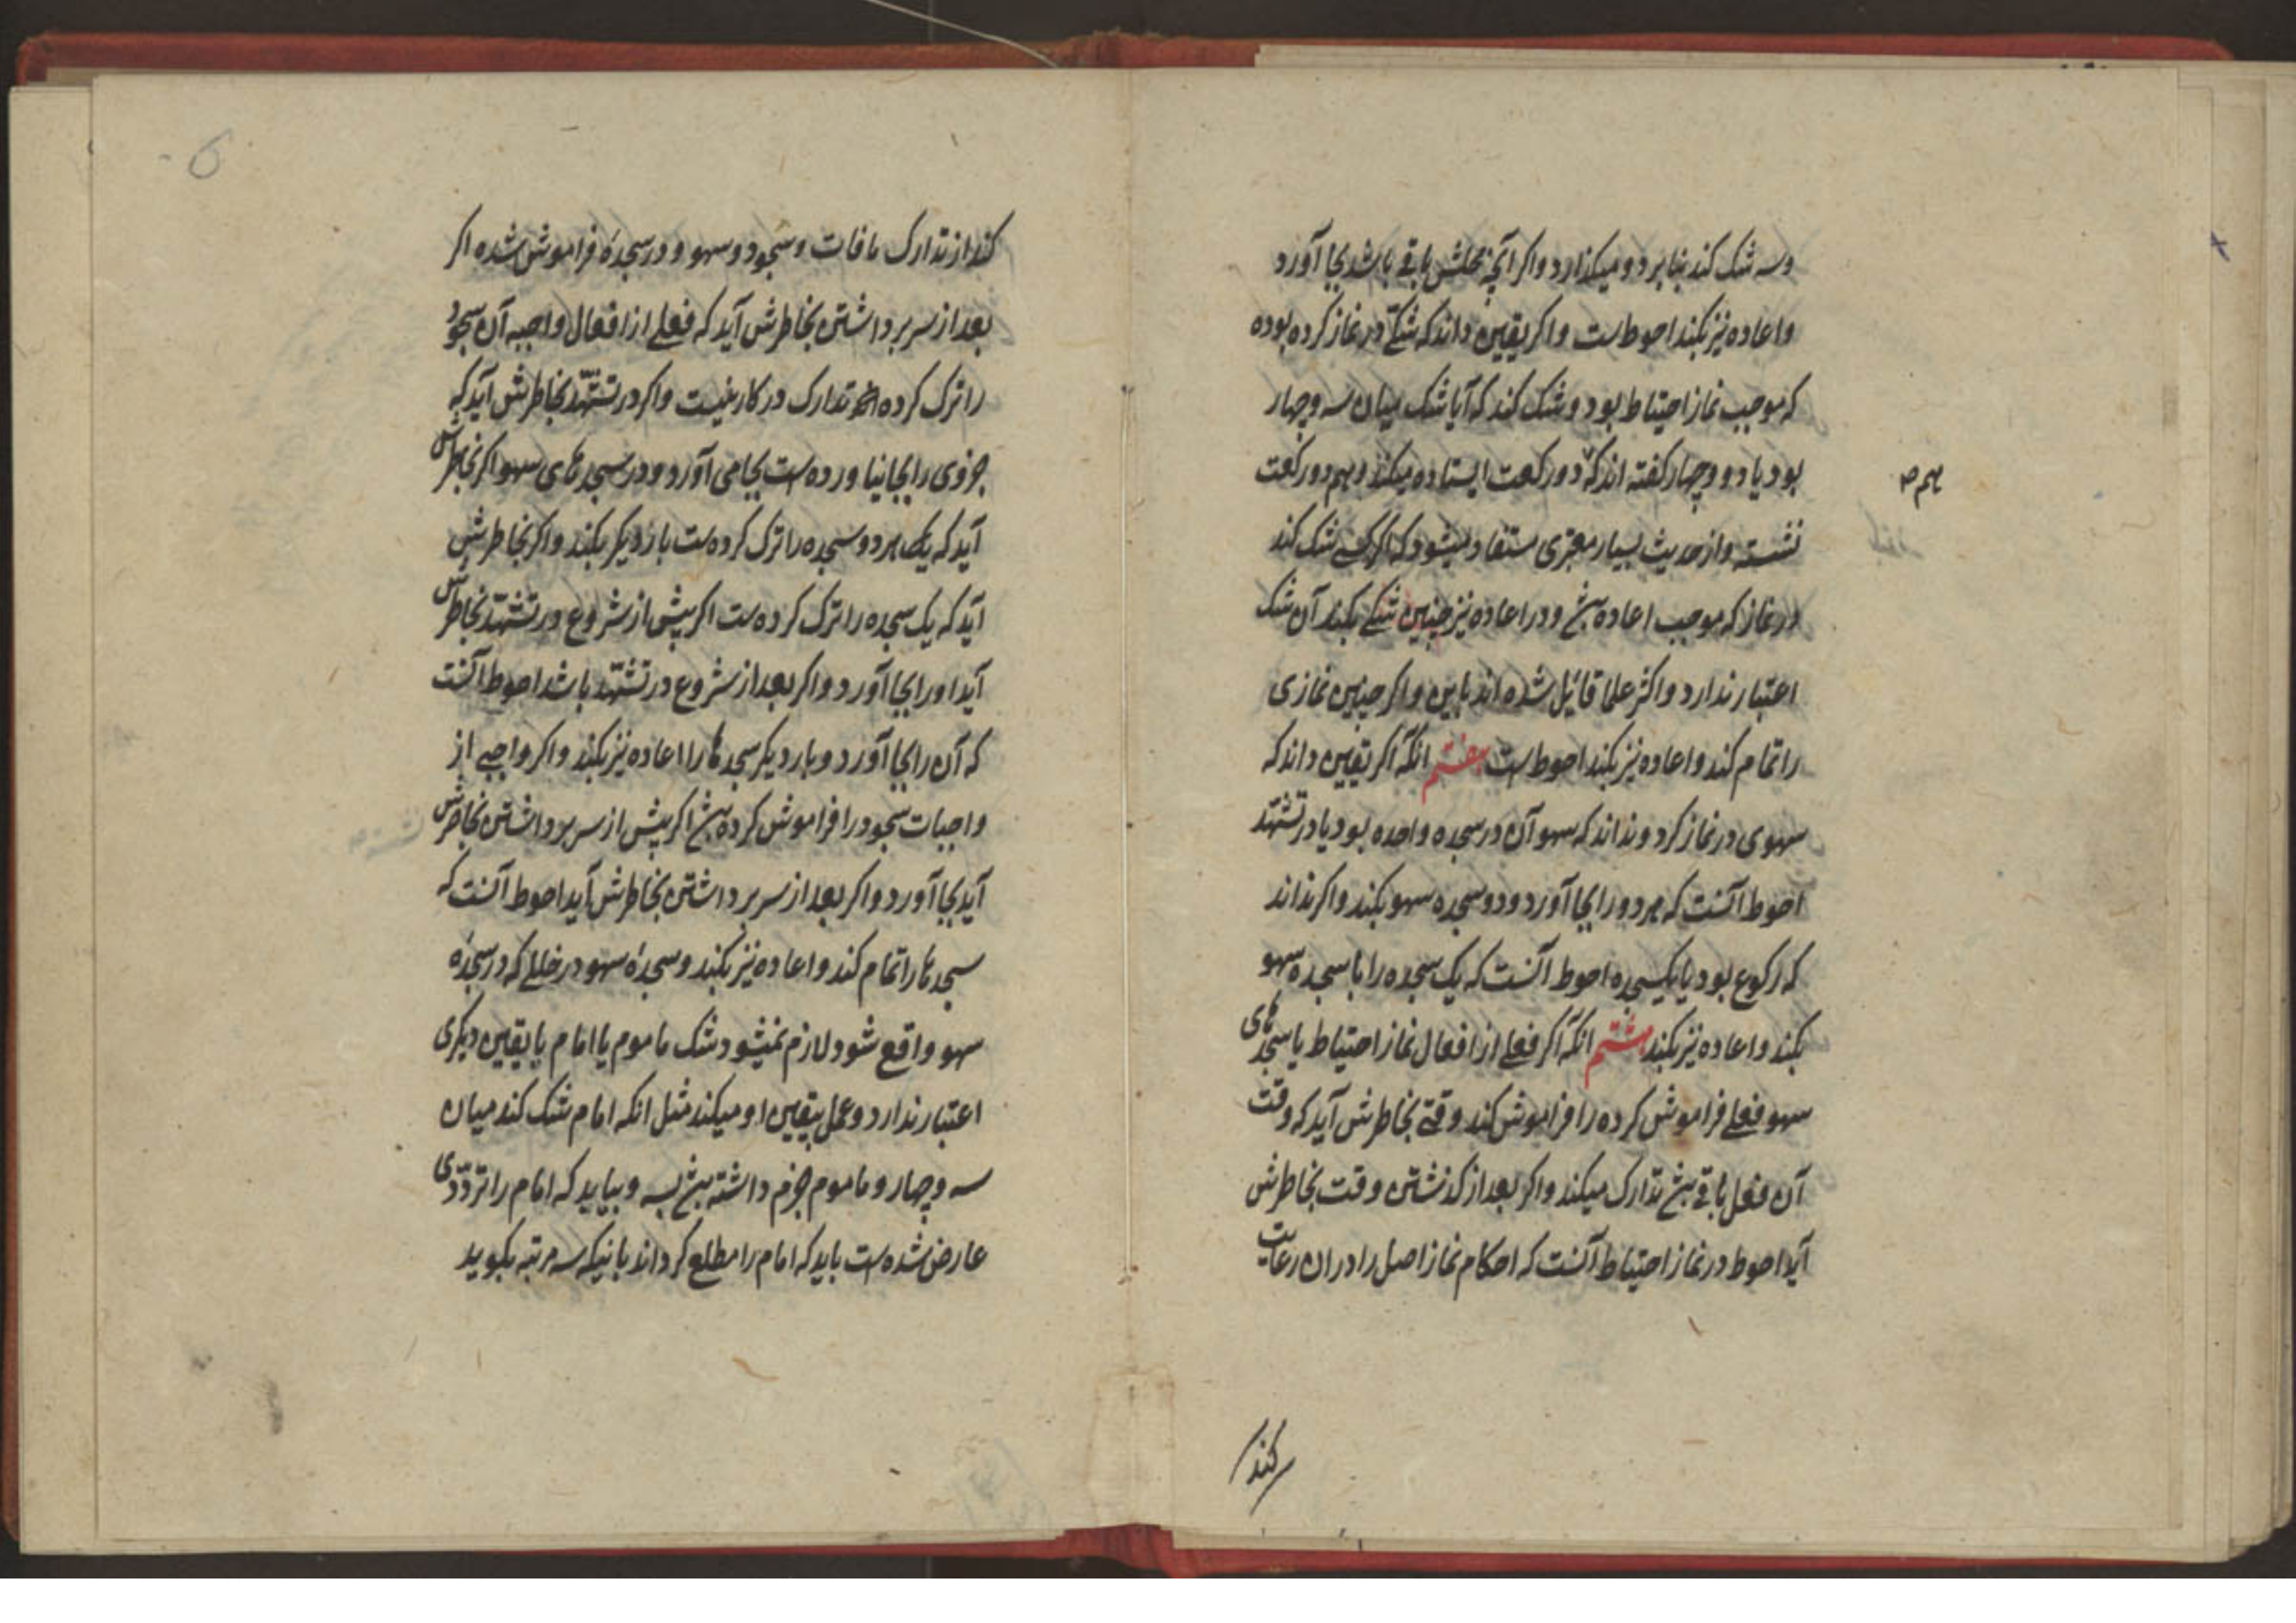 وسه شک کند بنا بر دو میکذارد واکر آنچه محلش باقی باشد بجا آورد
واعاده نیز بکند احوط است واکر یقین داند که شکی در نماز کرده بوده
که موجب نماز احتیاط بود وشک کند که آیا شک میان سه وچهار
بود یا دو وچهار کفته اند که دو رکعت ایستاده میکند وهم دو رکعت
هم
نشسته واز حدیث بسیار معتبری مستفاد میشود که اکر کسی شک کند
در نماز که موجب اعاده بش ودر اعاده نیز چنین شکی بکند آن شک
اعتبار ندارد واکثر علما قائل شده اند باین واکر چنین نمازی
را تمام کند واعاده نیز بکند احوط است هفتم انکه اکر یقین داند که
سهوی در نماز کرد ونداند که سهو آن در سجده واحده بود یا در تشهّد
احوط آنست که هر دو را بجا آورد ودو سجده سهو بکند واکر نداند
که رکوع بود یا یکسجده احوط آنست که یک سجده را با سجده سهو
بکند واعاده نیز بکند هشتم انکه اکر فعلی از افعال نماز احتیاط یا سجدهای
سهو فعلی فراموش کرده را فراموش کند وقتی بخاطرش آید که وقت
آن فعل باقی بش تدارک میکند واکر بعد از کذشتن وقت بخاطرش
آید احوط در نماز احتیاط آنست که احکام نماز اصل را در ان رعایت
کند
6
کند از تدارک مافات وسجود وسهو ودر سجدهٔ فراموش شده اکر
بعد از سر برداشتن بخاطرش آید که فعلی از افعال واجبه آن سجود
را ترک کرده تدارک در کار نیست واکر در تشهّد بخاطرش آید که
جزوی را بجا نیاورده است بجا می آورد ودر سجدهای سهو اکر بخاطرش
آید که هر دو سجده را ترک کرده است باز دیکر بکند واکر بخاطرش
آید که یک سجده را ترک کرده است اکر پیش از شروع در تشهّد بخاطرش
آید اورا بجا آورد واکر بعد از شروع در تشهّد باشد احوط آنست
که آن را بجا آورد وبار دیکر سجدها را اعاده نیز بکند واکر واجبی از
واجبات سجود را فراموش کرده بش اکر پیش از سر برداشتن بخاطرش
آید بجا آورد واکر بعد از سر برداشتن بخاطرش آید احوط آنست که
سجدها را تمام کند واعاده نیز بکند وسجدهٔ سهو در خللی که در سجدهٔ
سهو واقع شود لازم نمیشود شک ماموم یا امام با یقین دیکری
اعتبار ندارد وعمل بیقین او میکند مثل انکه امام شک کند میان
سه وچهار وماموم جزم داشته بش بسه وبیابد که امام را تردّدی
عارض شده است باید که امام را مطلع کرداند بانیکه سه مرتبه بکوید